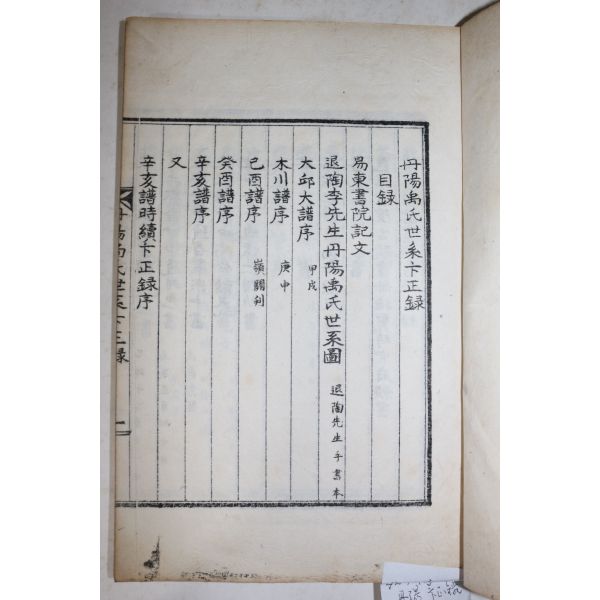 丹陽禹氏世系卞正録
目録
易東書院記文
退陶李先生丹陽禹氏世系圖 退陶先生手書本
大邱大譜序 甲戌
木川譜序 庚申
己酉譜序 嶺關刊
癸酉譜序
辛亥譜序
又
辛亥譜時續卞正録序
丹陽禹氏世系卞正録